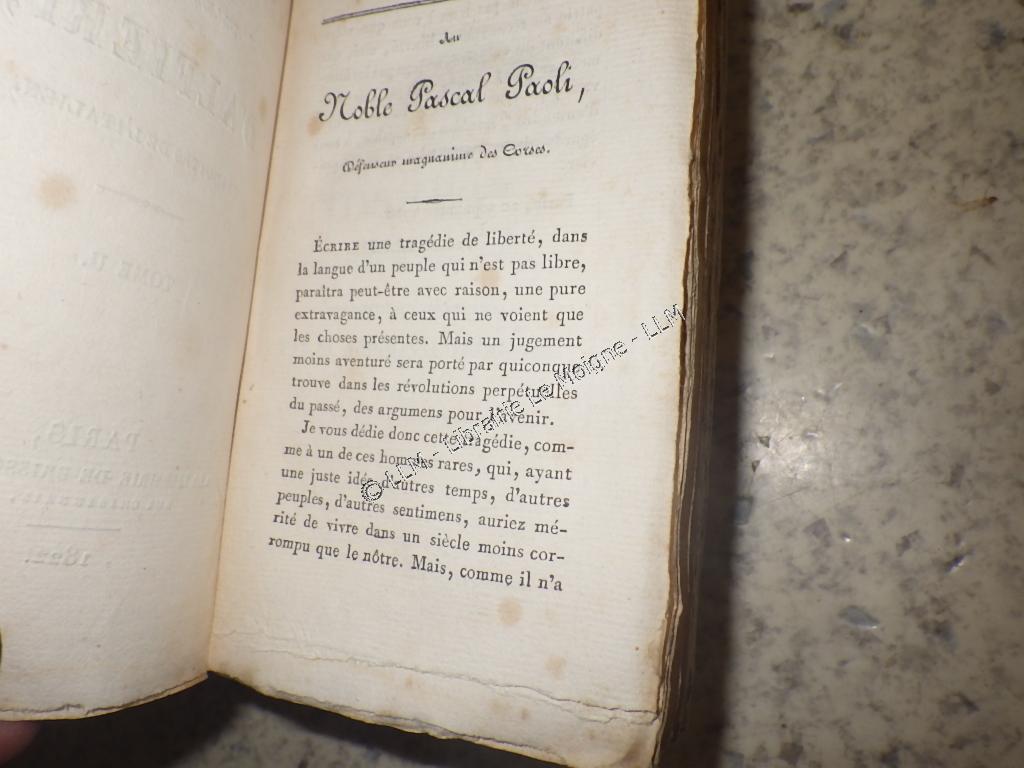 Au
Noble Pascal Paoli,
Défenseur magnanime des Corses.
ÉCRIRE une tragédie de liberté, dans
la langue d'un peuple qui n'est pas libre,
paraîtra peut-être avec raison, une pure
extravagance, à ceux qui ne voient que
les choses présentes. Mais un jugement
moins aventuré sera porté par quiconque
trouve dans les révolutions perpétuelles
du passé, des argumens pour l'avenir.
Je vous dédie donc cette tragédie, com-
me à un de ces hommes rares, qui, ayant
une juste idée d'autres temps, d'autres
peuples, d'autres sentimens, auriez mé-
rité de vivre dans un siècle moins cor-
rompu que le nôtre. Mais, comme il n'a
© LLM - Librairie Le Moigne - LLM
TOME II.
PARIS,
1822.